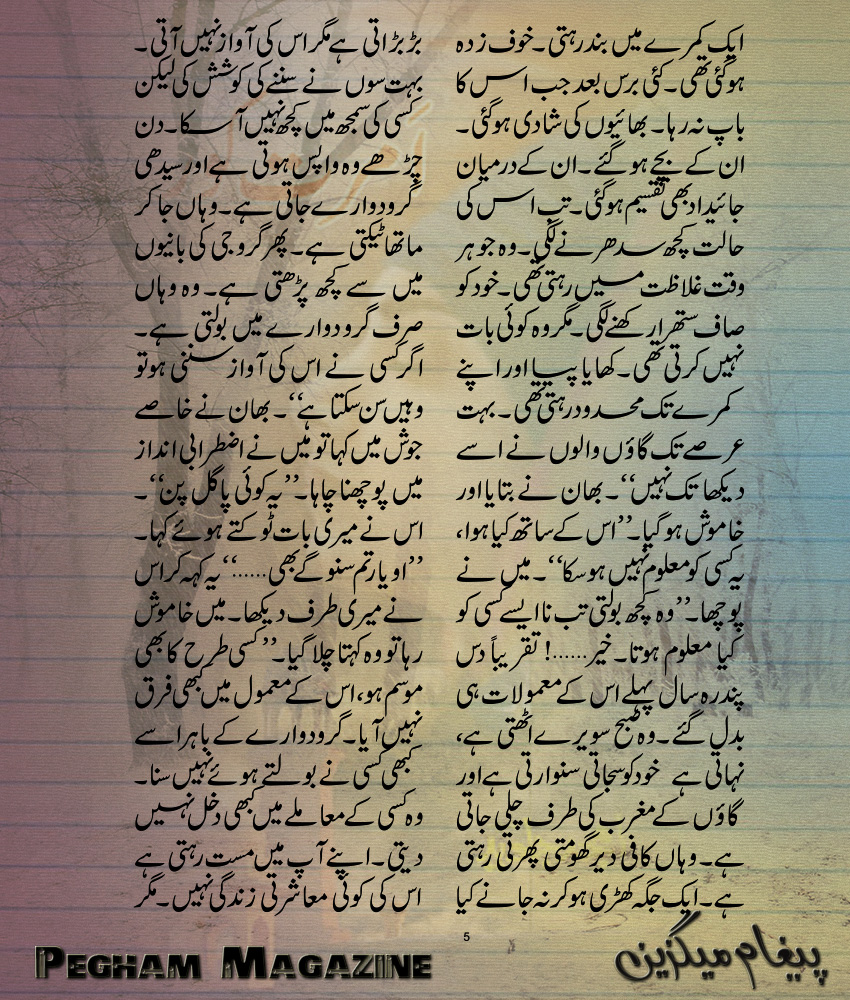 ایک کمرے میں بند رہتی۔ خوف زدہ
ہو گئی تھی۔ کئی برس بعد جب اس کا
باپ نہ رہا۔ بھائیوں کی شادی ہو گئی۔
ان کے بچے ہو گئے۔ ان کے درمیان
جائیداد بھی تقسیم ہو گئی۔ تب اس کی
حالت کچھ سدھرنے لگی۔ وہ جو ہر
وقت غلاظت میں رہتی تھی۔ خود کو
صاف ستھرا رکھنے لگی۔ مگر وہ کوئی بات
نہیں کرتی تھی۔ کھایا پیا اور اپنے
کمرے تک محدود رہتی تھی۔ بہت
عرصے تک گاؤں والوں نے اسے
دیکھا تک نہیں‘‘۔ بھان نے بتایا اور
خاموش ہو گیا۔ ’’اس کے ساتھ کیا ہوا،
یہ کسی کو معلوم نہیں ہو سکا‘‘۔ میں نے
پوچھا۔ ’’وہ کچھ بولتی تب نا ایسے کسی کو
کیا معلوم ہوتا۔ خیر......! تقریباً دس
پندرہ سال پہلے اس کے معمولات ہی
بدل گئے۔ وہ صبح سویرے اٹھتی ہے،
نہاتی ہے خود کو سجاتی سنوارتی ہے اور
گاؤں کے مغرب کی طرف چلی جاتی
ہے۔ وہاں کافی دیر گھومتی پھرتی رہتی
ہے۔ ایک جگہ کھڑی ہو کر نہ جانے کیا
بڑبڑاتی ہے مگر اس کی آواز نہیں آتی۔
بہت سوں نے سننے کی کوشش کی لیکن
کسی کی سمجھ میں کچھ نہیں آ سکا۔ دن
چڑھے وہ واپس ہوتی ہے اور سیدھی
گرودوارے جاتی ہے۔ وہاں جا کر
ماتھا ٹیکتی ہے۔ پھر گرو جی کی بانیوں
میں سے کچھ پڑھتی ہے۔ وہ وہاں
صرف گرودوارے میں بولتی ہے۔
اگر کسی نے اس کی آواز سننی ہو تو
وہیں سن سکتا ہے‘‘۔ بھان نے خاصے
جوش میں کہا تو میں نے اضطرابی انداز
میں پوچھنا چاہا۔ ’’یہ کوئی پاگل پن‘‘۔
اس نے میری بات ٹوکتے ہوئے کہا۔
’’او یار تم سنو گے بھی......‘‘ یہ کہہ کر اس
نے میری طرف دیکھا۔ میں خاموش
رہا تو وہ کہتا چلا گیا۔ ’’کسی طرح کا بھی
موسم ہو، اس کے معمول میں کبھی فرق
نہیں آیا۔ گرودوارے کے باہر اسے
کبھی کسی نے بولتے ہوئے نہیں سنا۔
وہ کسی کے معاملے میں کبھی دخل نہیں
دیتی۔ اپنے آپ میں مست رہتی ہے
اس کی کوئی معاشرتی زندگی نہیں۔ مگر
5
پیغام میگزین
PEGHAM MAGAZINE